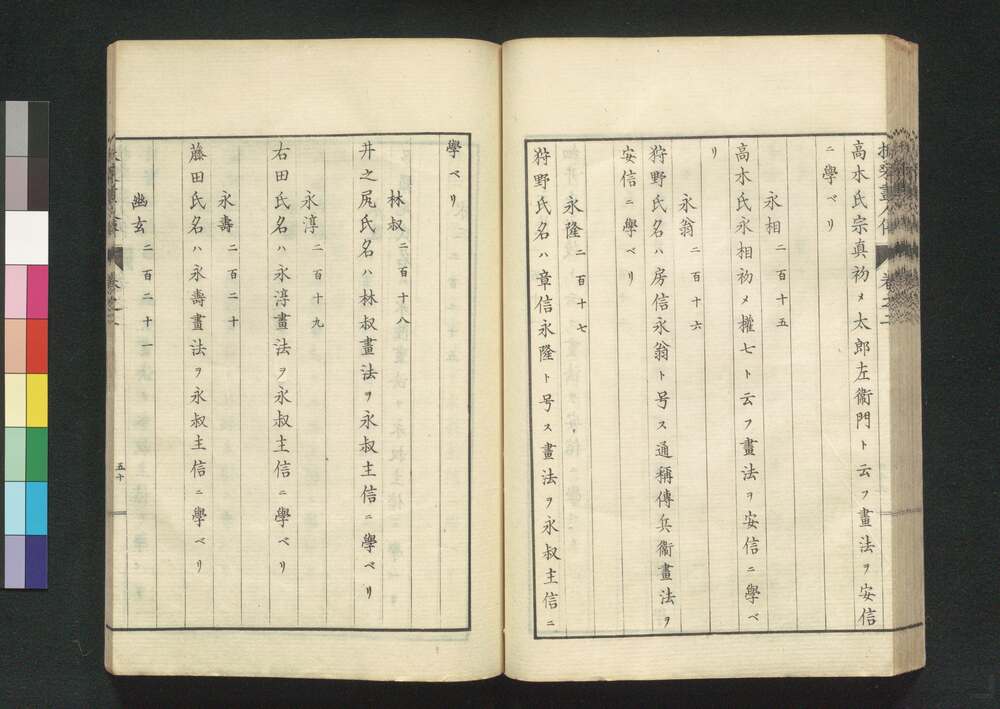 高木氏宗真初メ太郎左衞門ト云フ畫法ヲ安信
ニ學ベリ
永相二百十五
高木氏永相初メ權七ト云フ畫法ヲ安信ニ學ベ
リ
永翁二百十六
狩野氏名ハ房信永翁ト号ス通稱傳兵衞畫法ヲ
安信ニ學ベリ
永隆二百十七
狩野氏名ハ章信永隆ト号ス畫法ヲ永叔主信ニ
學ベリ
林叔二百十八
井之尻氏名ハ林叔畫法ヲ永叔主信ニ學ベリ
永淳二百十九
右田氏名ハ永淳畫法ヲ永叔主信ニ學ベリ
永壽二百二十
藤田氏名ハ永壽畫法ヲ永叔主信ニ學ベリ
幽玄二百二十一
五十